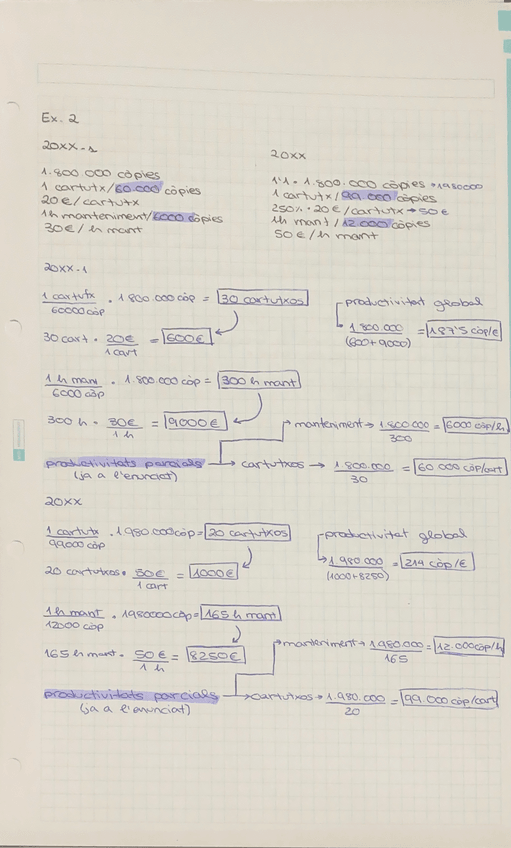 Ex. 2
20XX-1
1.800.000 còpies
1 cartutx/60.000 còpies
20€/cartutx
1h manteniment/6000 còpies
30€/h mant
20XX
1'1 · 1.800.000 còpies → 1980000
1 cartutx/99.000 còpies
250% · 20€/cartutx → 50€
1h mant/12.000 còpies
50€/h mant
20XX-1
1 cartutx/60000 còp · 1.800.000 còp = 30 cartutxos
30 cart · 20€/1 cart = 600€
productivitat global
1.800.000/(600+9000) = 187'5 còp/€
1 h man/6000 còp · 1.800.000 còp = 300 h mant
300 h · 30€/1 h = 9000€
manteniment → 1.800.000/300 = 6000 còp/h
productivitats parcials → cartutxos → 1.800.000/30 = 60.000 còp/cart
(ja a l'enunciat)
20XX
1 cartutx/99000 còp · 1.980.000 còp = 20 cartutxos
20 cartutxos · 50€/1 cart = 1000€
productivitat global
1.980.000/(1000+8250) = 214 còp/€
1 h mant/12000 còp · 1980000 còp = 165 h mant
165 h mant · 50€/1 h = 8250€
manteniment → 1.980.000/165 = 12.000 còp/h
productivitats parcials → cartutxos → 1.980.000/20 = 99.000 còp/cart
(ja a l'enunciat)